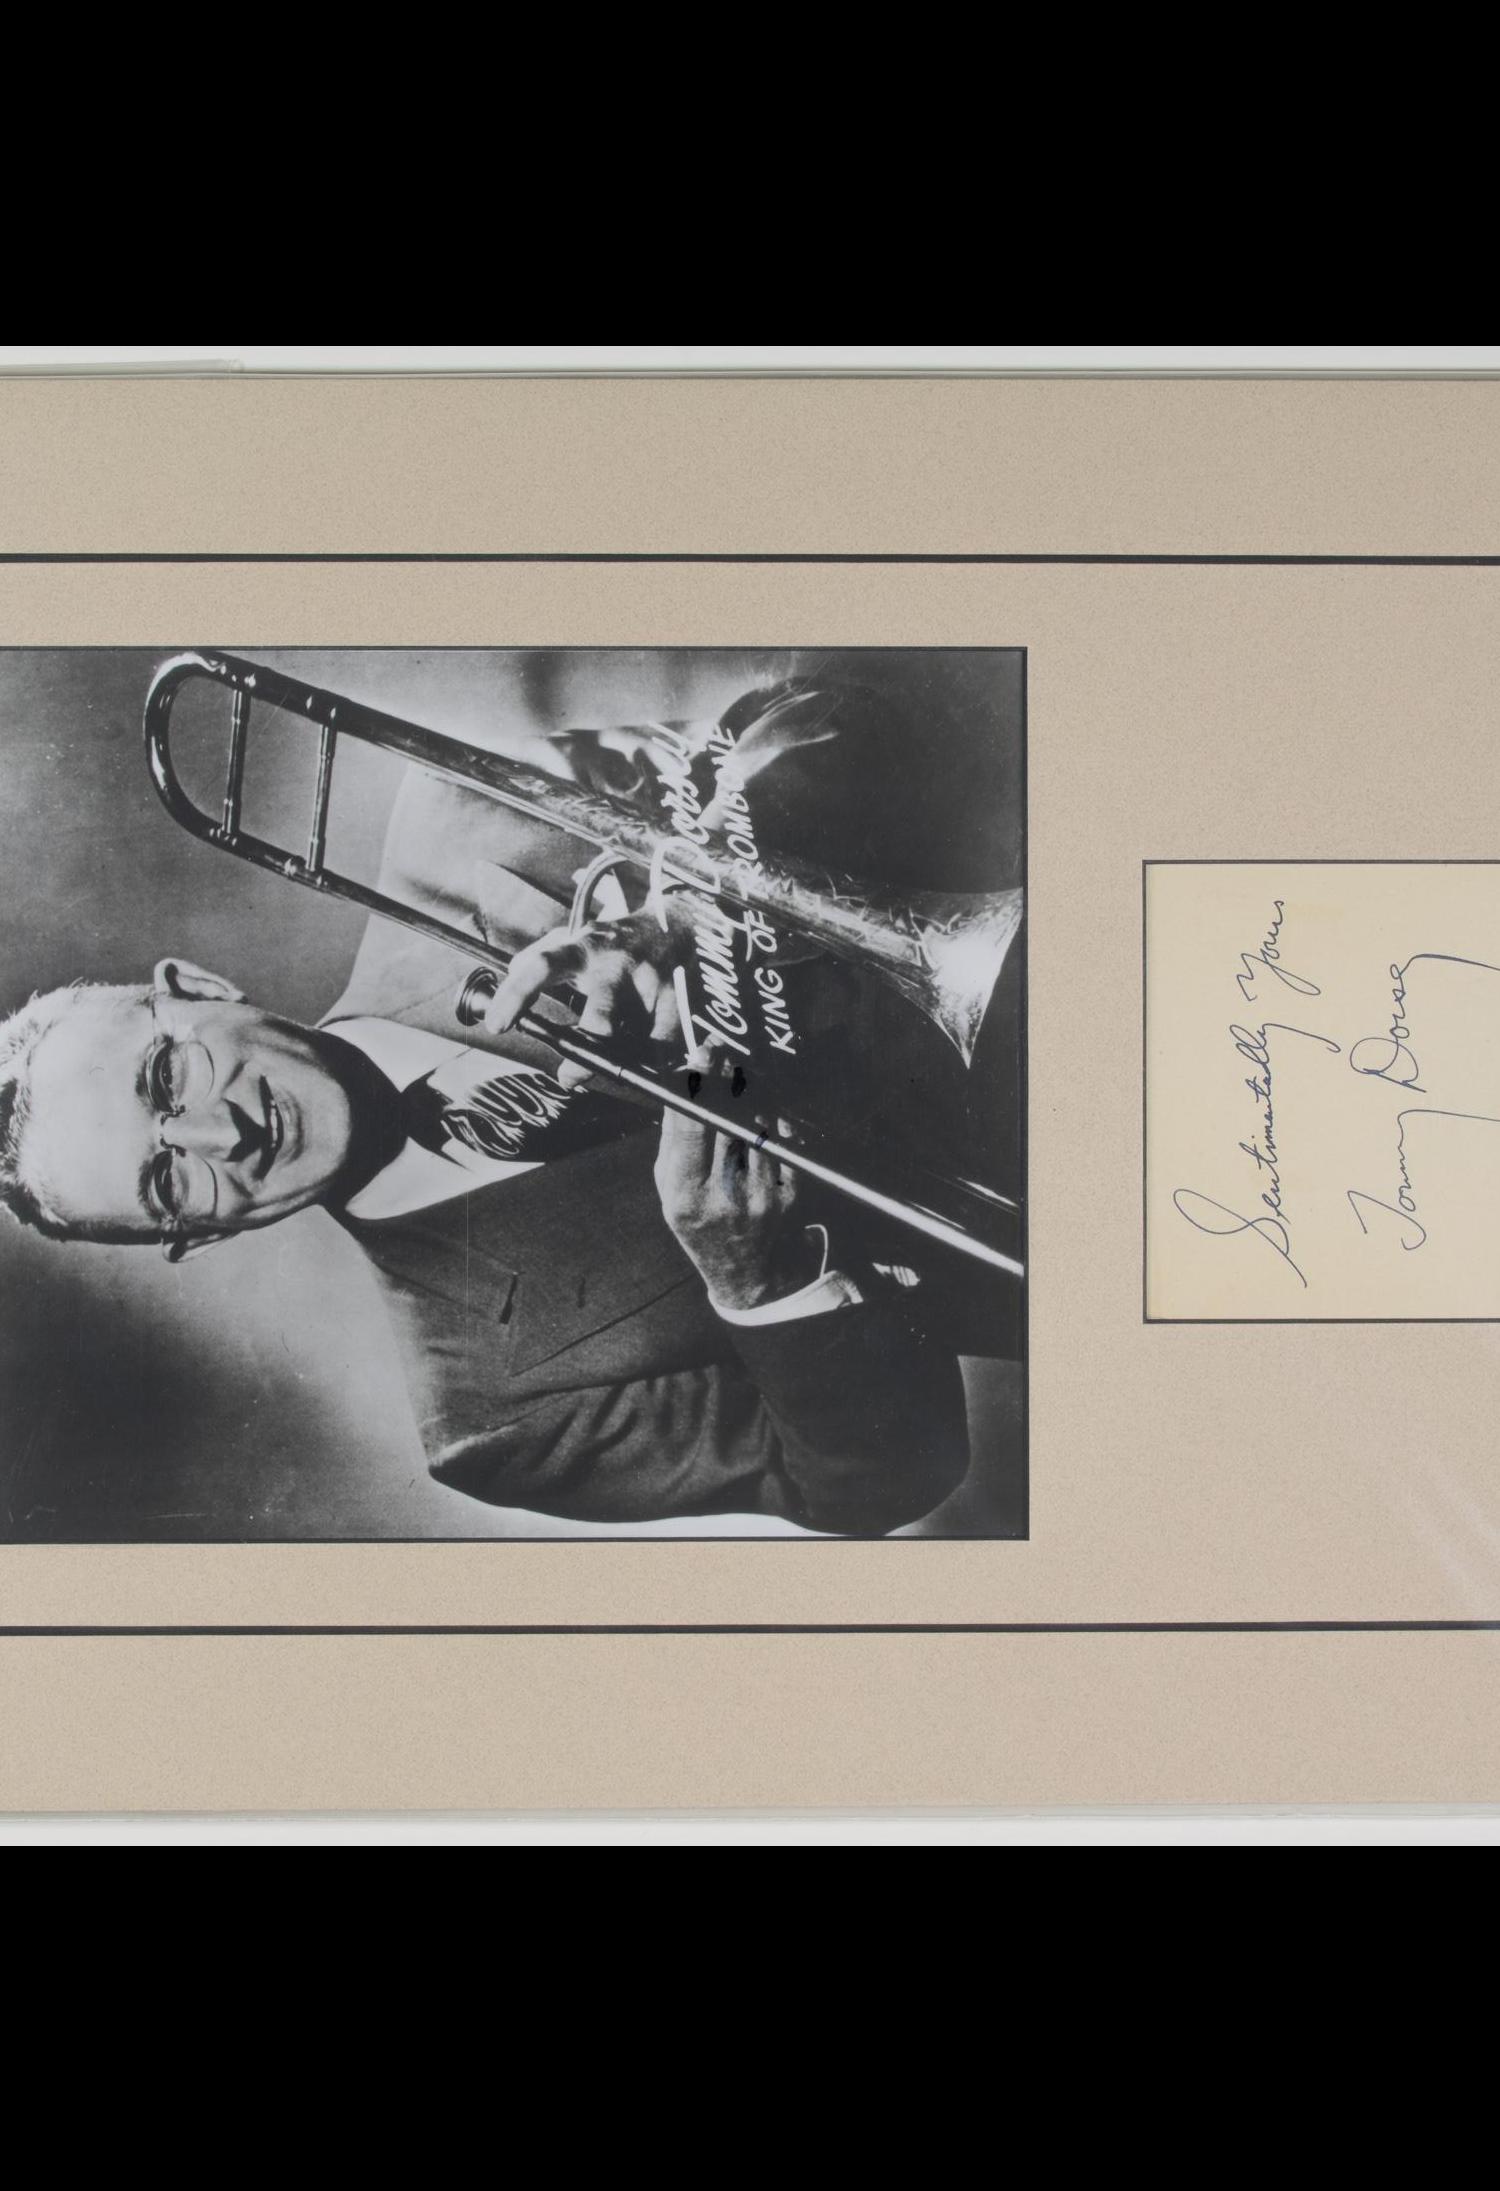 Tommy Dorsey
KING OF TROMBONE
Sentimentally Yours
Tommy Dorsey